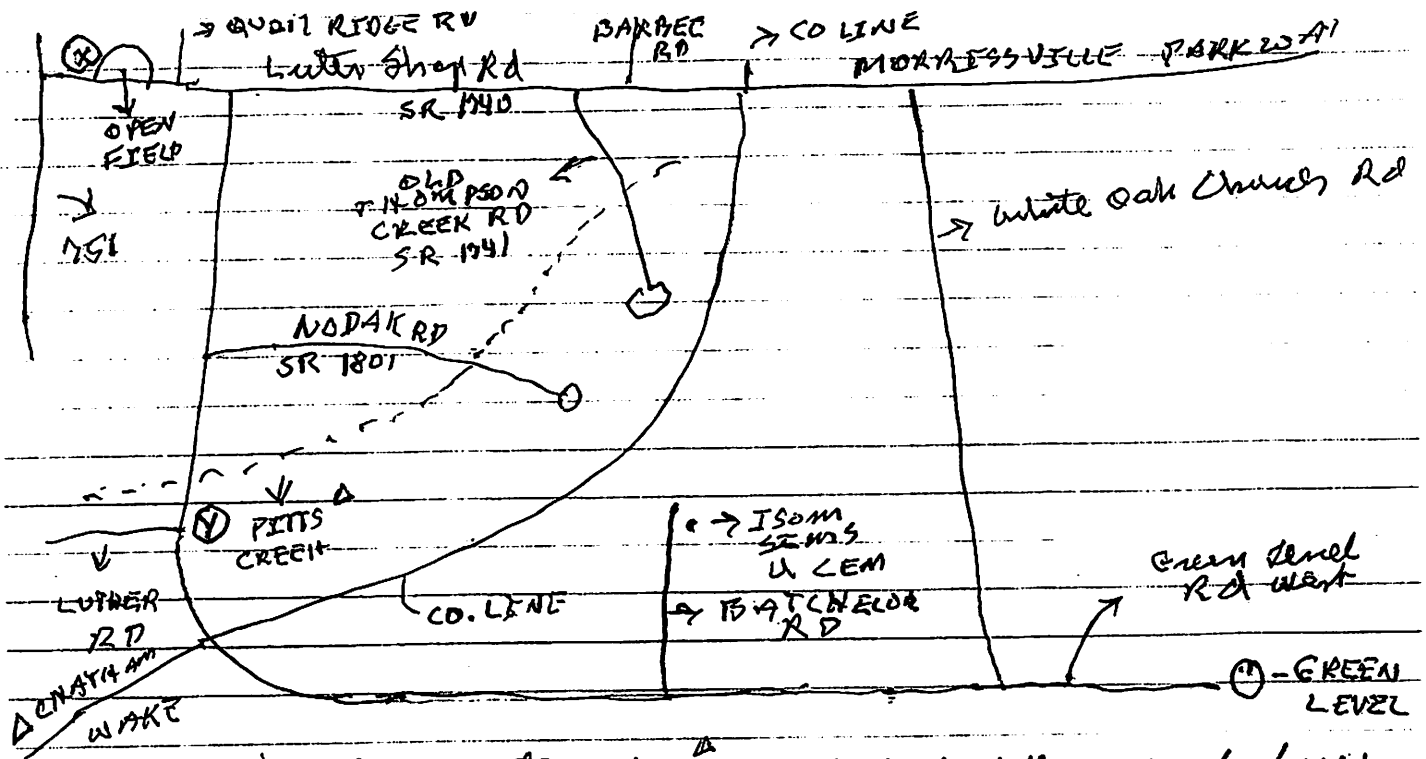 X
QUAIL RIDGE RD
Luter Shop Rd
SR 1740
BARBEE
RD
CO LINE
MORRISSVILLE PARKWAY
OPEN
FIELD
751
OLD
THOMPSON
CREEK RD
SR 1741
White Oak Church Rd
NODAK RD
SR 1801
Y
PITTS
CREEK
LUTHER
RD
CO. LINE
ISOM
SEMS
U CEM
BATCHELOR
RD
Green Level
Rd West
GREEN
LEVEL
CHATHAM
WAKE